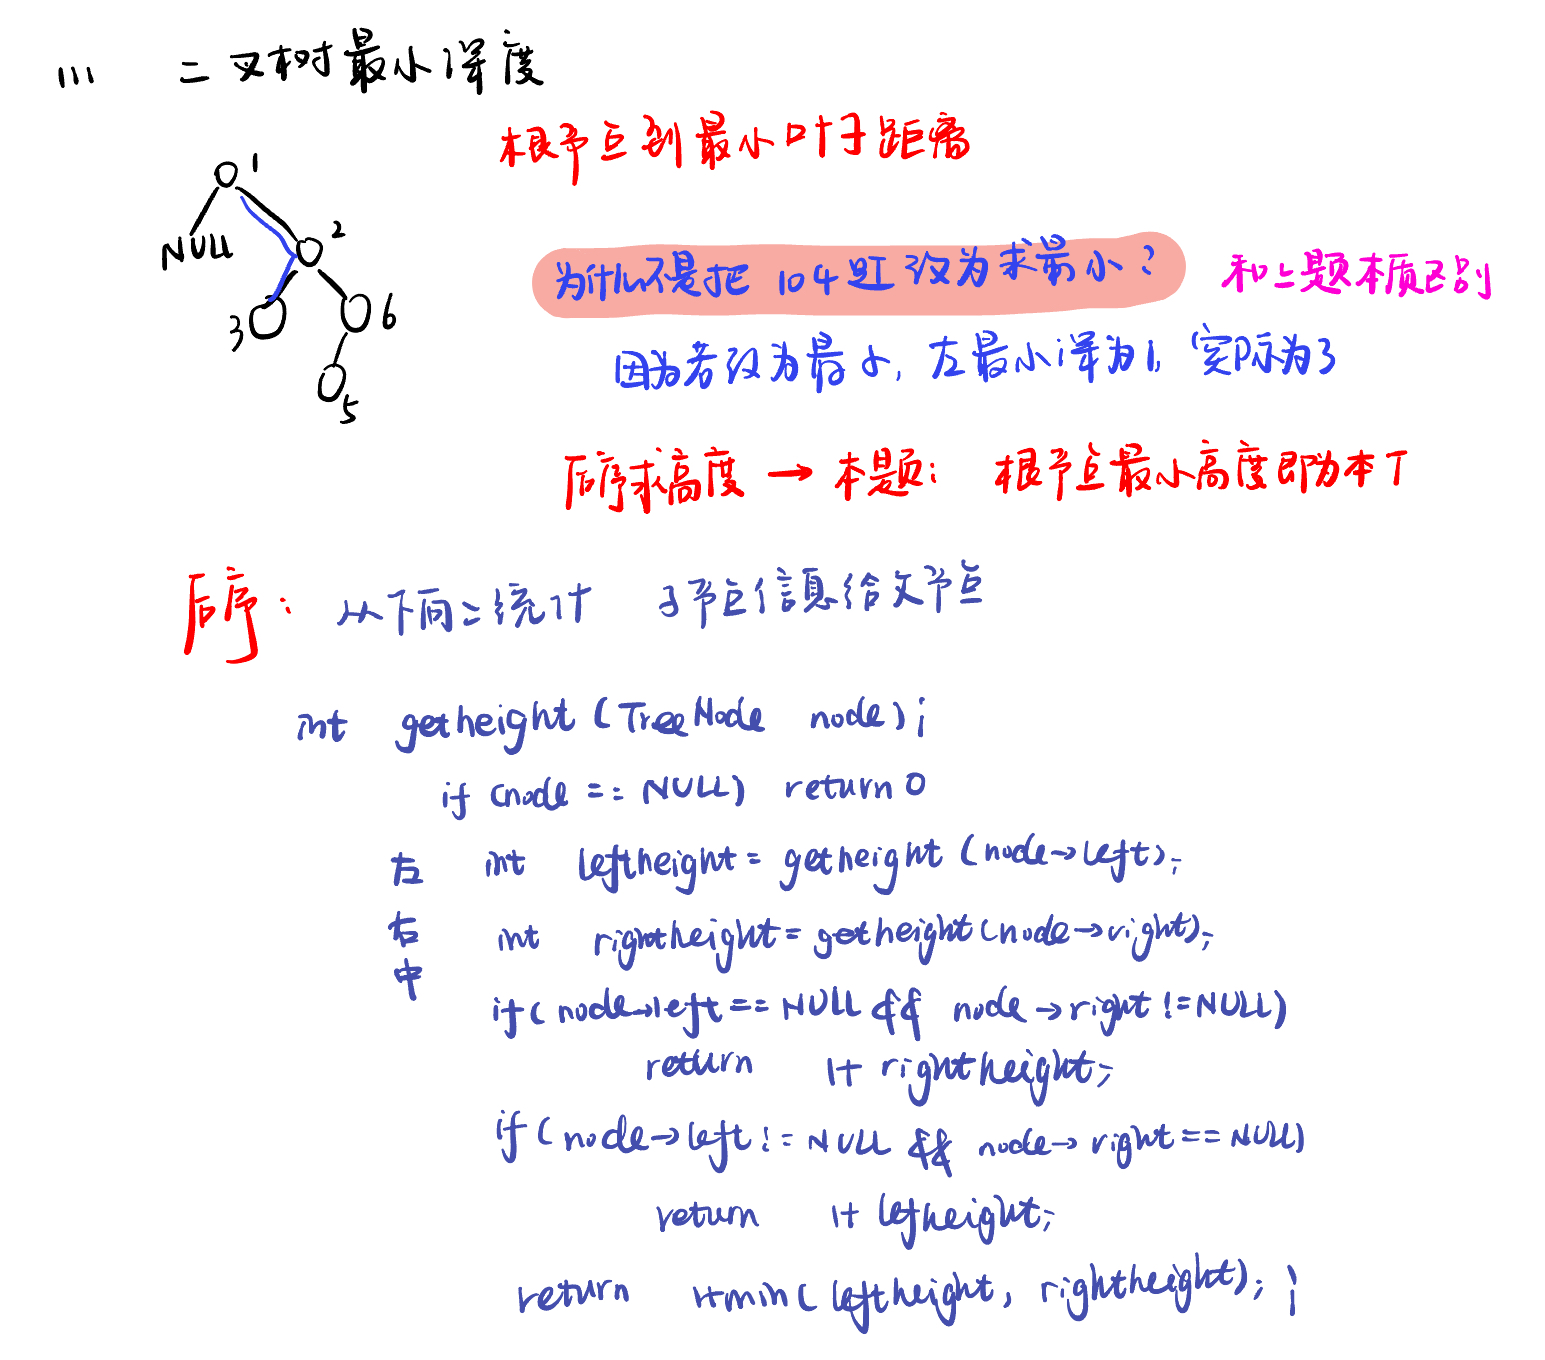 111 二叉树最小深度
根节点到最小叶子距离
1
NULL
2
3
6
5
为什么不是把104题改为求最小? 和上题本质区别
因为若改为最小,左最小深为1,实际为3
后序求高度 → 本题: 根节点最小高度即为本T
后序: 从下向上统计 子节点信息给父节点
int getheight (TreeNode node);
if (node == NULL) return 0
左 int leftheight = getheight (node->left);
右 int rightheight = getheight (node->right);
中
if (node->left == NULL && node->right != NULL)
return 1+ rightheight;
if (node->left != NULL && node->right == NULL)
return 1+ lefheight;
return 1+min( leftheight, rightheight); }